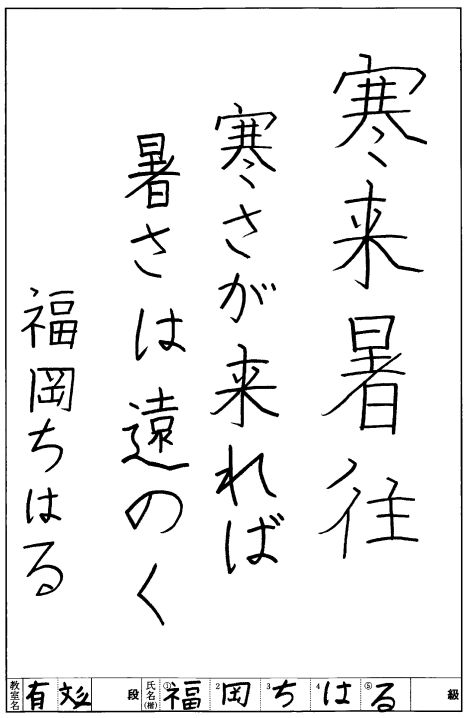 寒来暑往
寒さが来れば
暑さは遠のく
福岡ちはる
教室名 有効 段 氏名(楷) ①福 2岡 3ち 4は ⑤る 級